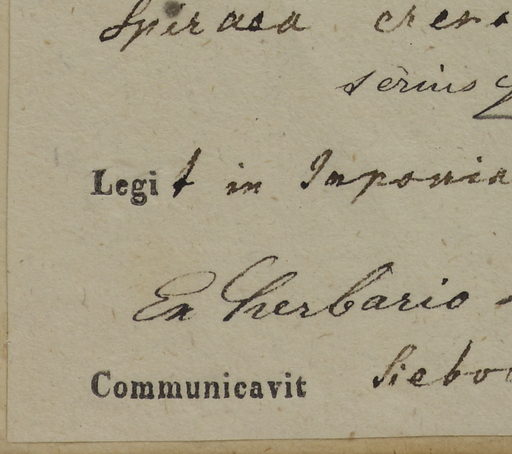 Spiraea cren
serius
Legit in Japonia
Ex herbario
Communicavit Siebo